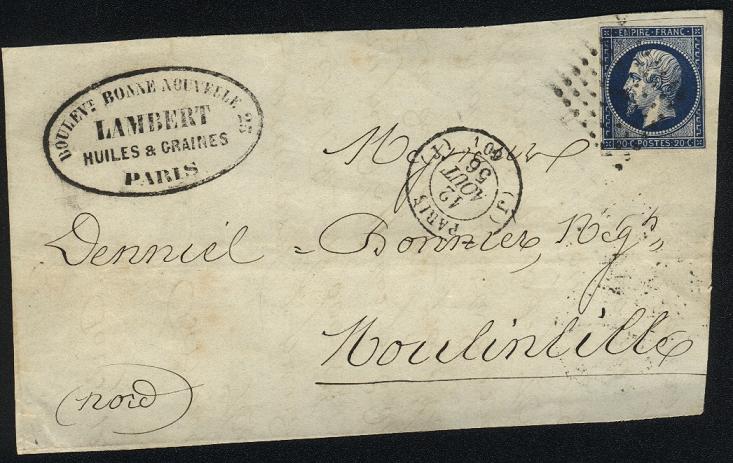 BOULEVT BONNE NOUVELLE, 25
LAMBERT
HUILES & GRAINES
PARIS
EMPIRE FRANC
20 C POSTES 20 C
PARIS (J)
12
AOUT
56
(J)
Denniel = Bonnier, Négts
Moulinlille
nord